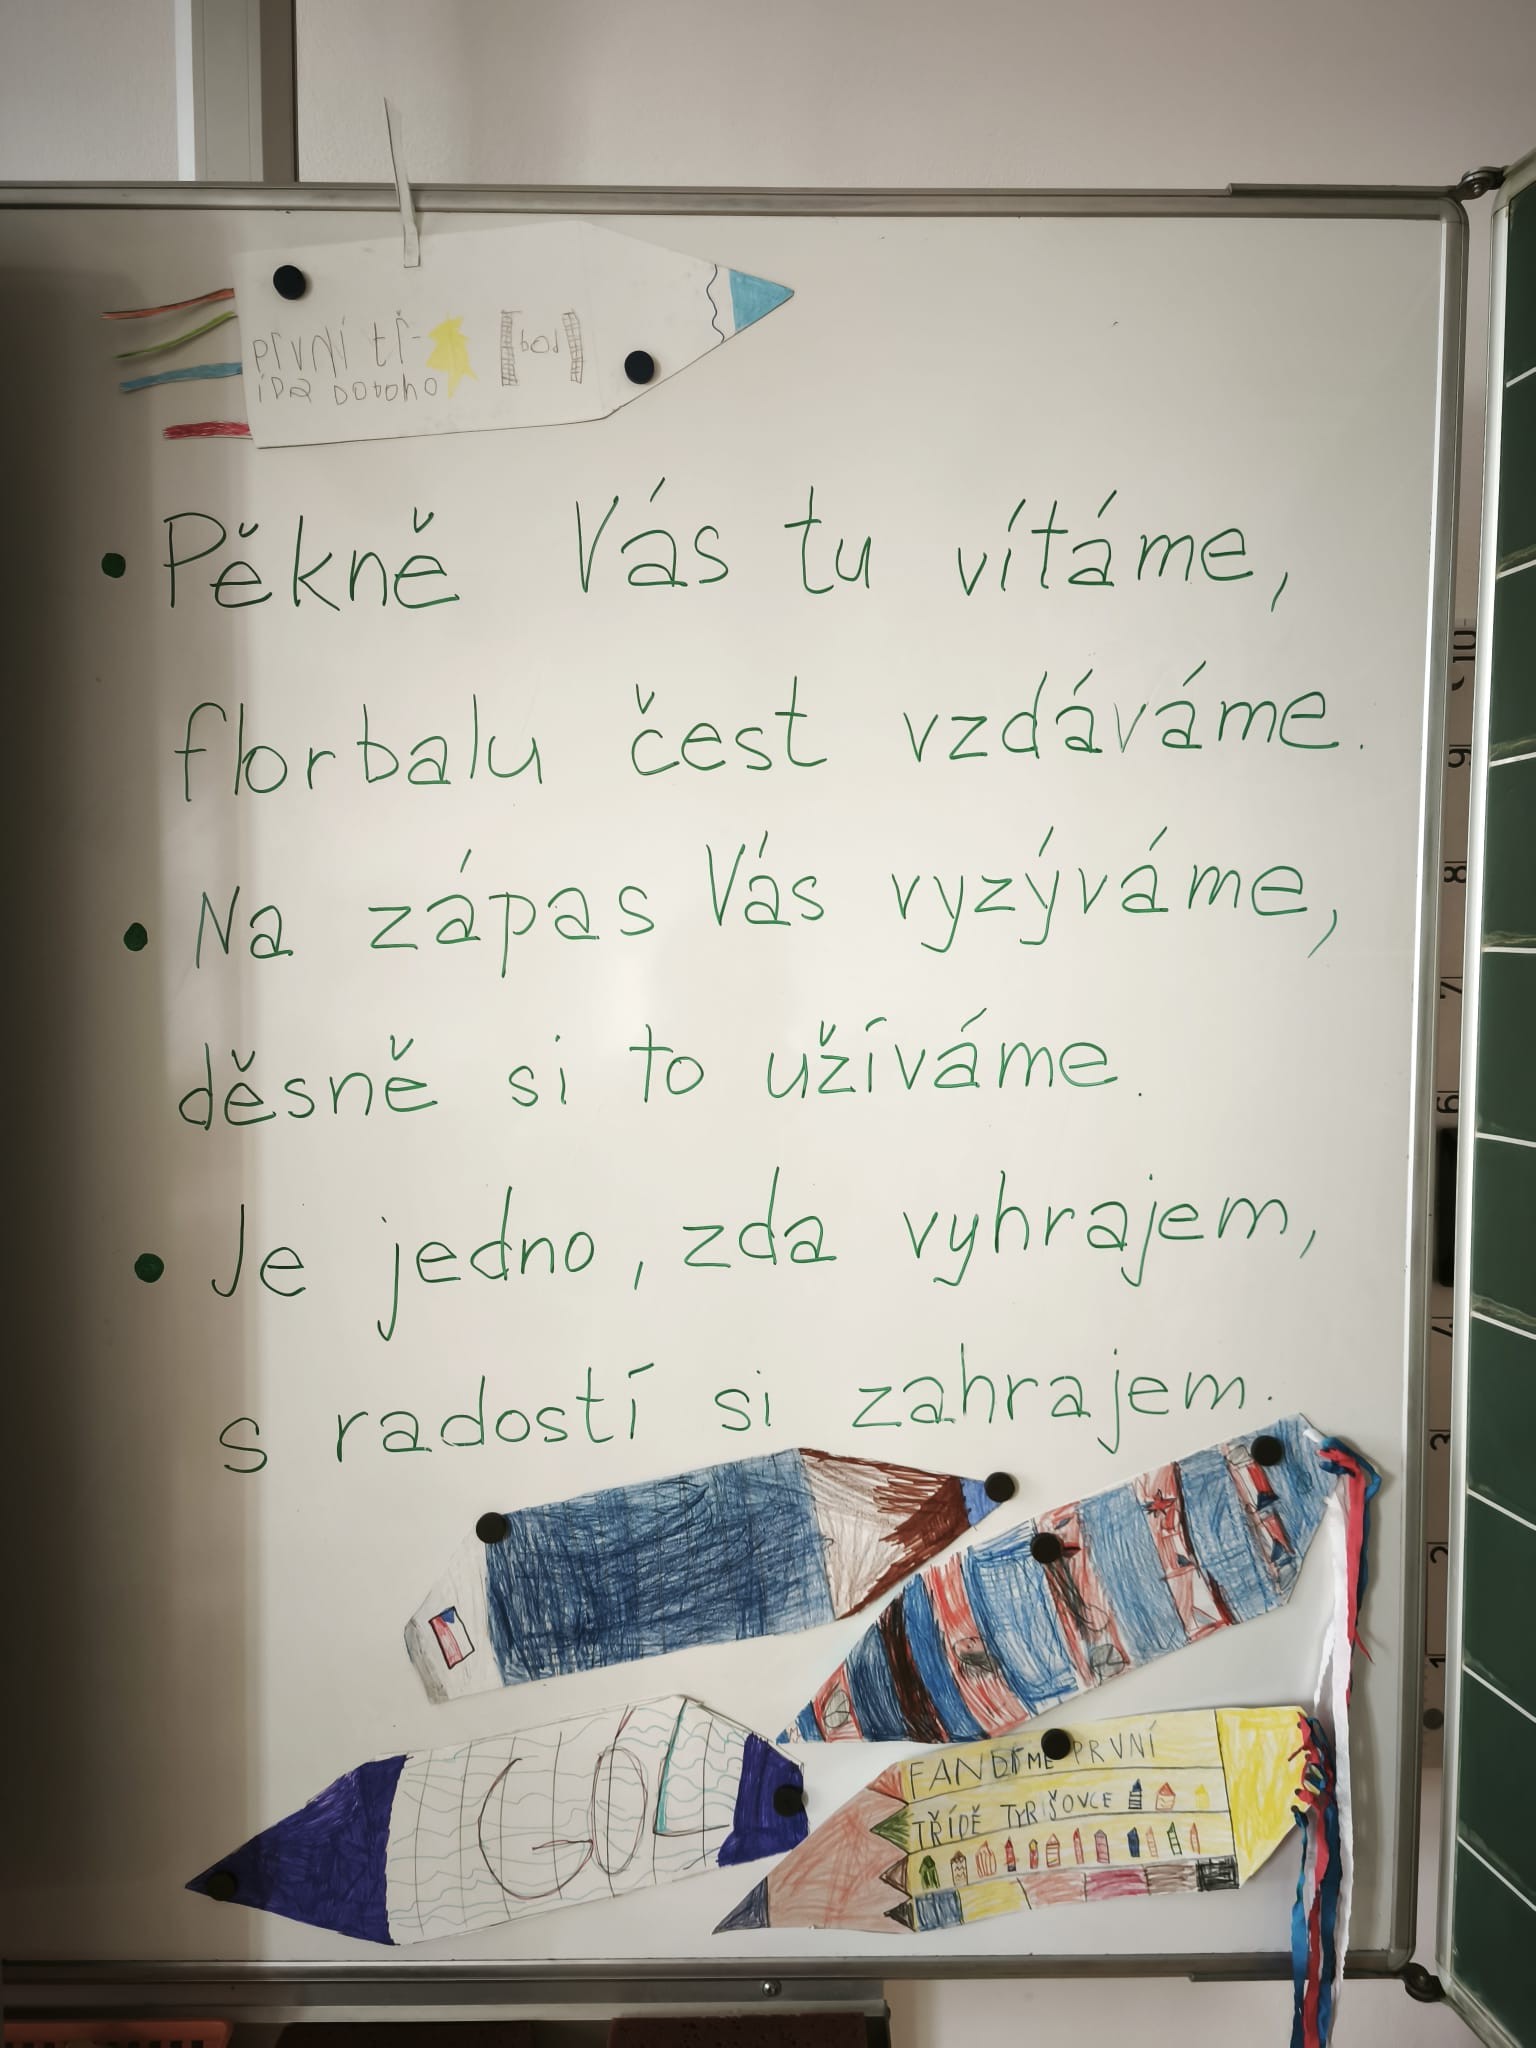 PrVNÍ tř-
íDa DOtoho
bod
• Pěkně Vás tu vítáme,
florbalu čest vzdáváme.
• Na zápas Vás vyzýváme,
děsně si to užíváme.
• Je jedno, zda vyhrajem,
s radostí si zahrajem.
GOL
FANDÍME PRVNÍ
TŘÍDĚ TYRŠOVCE
10
9
8
7
6
3
2
1